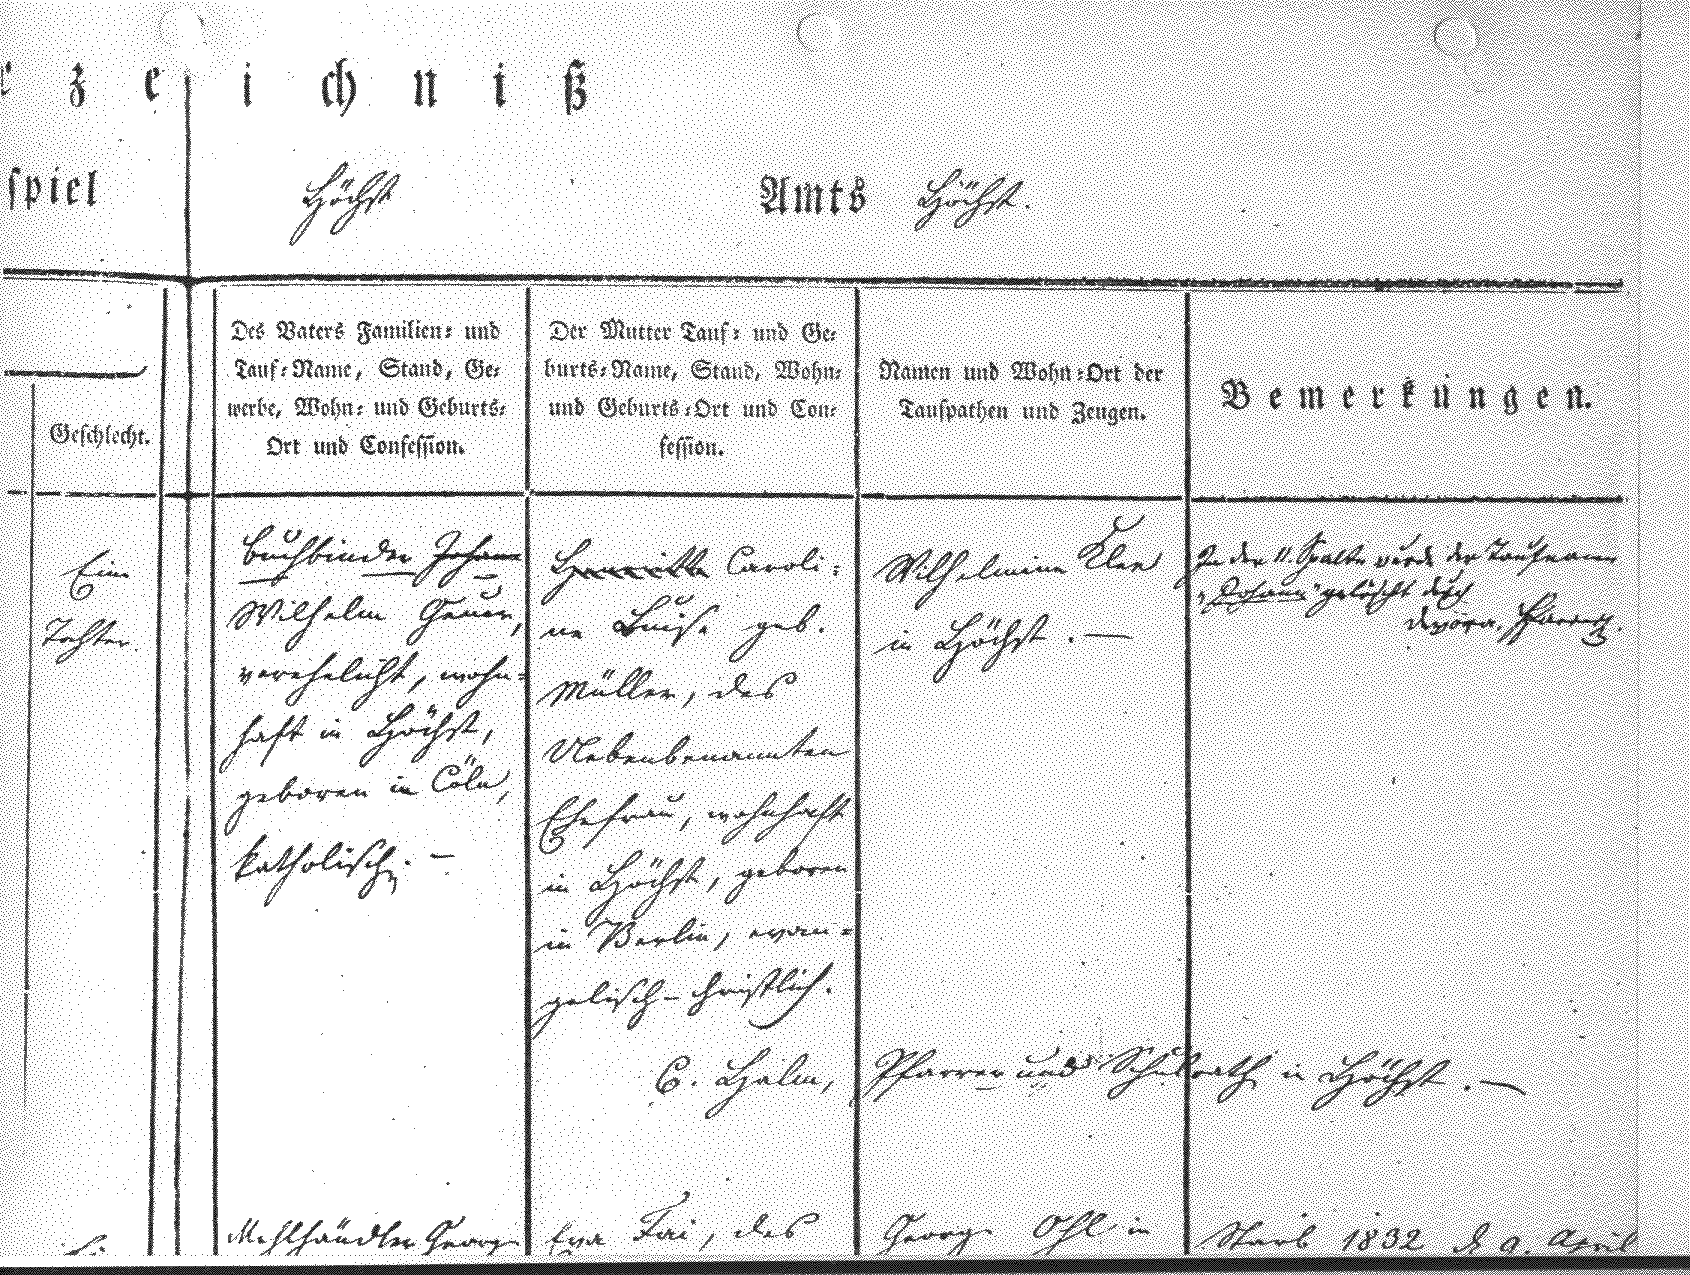 r z e i ch n i ß
spiel Höchst Amts Höchst.
Geschlecht.
Des Vaters Familien- und
Tauf-Name, Stand, Ge-
werbe, Wohn- und Geburts-
Ort und Confession.
Der Mutter Tauf- und Ge-
burts-Name, Stand, Wohn-
und Geburts-Ort und Con-
fession.
Namen und Wohn-Ort der
Taufpathen und Zeugen.
Bemerkungen.
Eine
Tochter.
Buchbinder Johann
Wilhelm
verehelicht, wohn-
haft in Höchst,
geboren in Cöln,
katholisch. —
Henriette Caroli-
ne Luise geb.
Müller, des
Nebenbenannten
Ehefrau, wohnhaft
in Höchst, geboren
in Berlin, evan-
gelisch-christlich.
Wilhelmine Klee
in Höchst. —
In der 11. Spalte wurde der Taufname
"Johann" gelöscht durch
Pfarrer.
C. Halm, Pfarrer und Schulrath in Höchst. —
Mehlhändler Georg
Eva des
Georg Ohl in
Starb 1832 d. 9. April